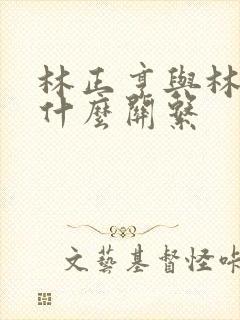 林正亨與林
什麼關繫
文藝基督怪咔